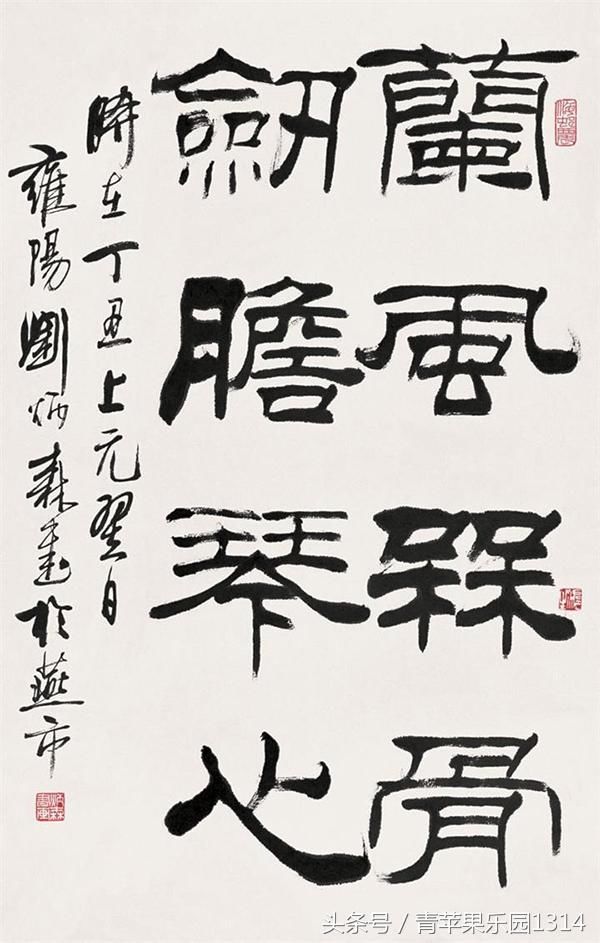 蘭風槑骨
劔膽琴心
時在丁丑上元翌日
雍陽劉炳森書於燕市
头条号 / 青苹果乐园1314